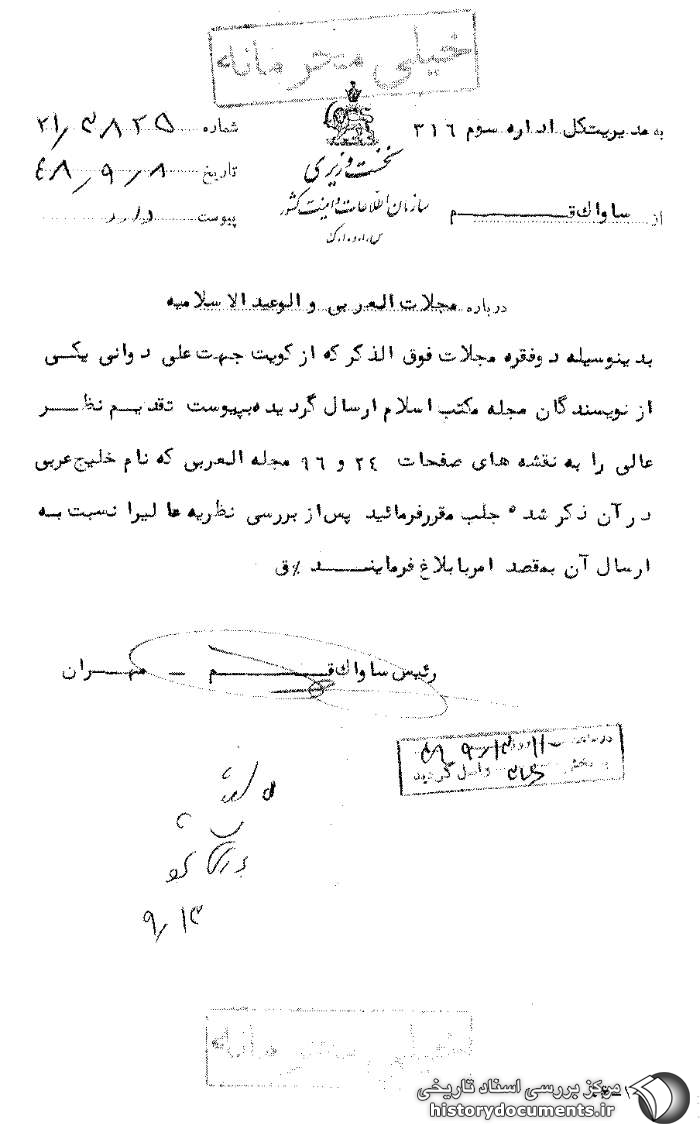 خیلی محرمانه
به مدیریت کل اداره سوم ۳۱۶
شماره ۲۱/۳۸۲۵
نخست وزیری
تاریخ ۴۸/۹/۸
از ساواک قم
سازمان اطلاعات و امنیت کشور
پیوست دارد
س.ا.و.ا.ک
درباره مجلات العربی و الوعیدالاسلامیه
بدینوسیله دوفقره مجلات فوق الذکر که از کویت جهت علی دوانی یکی
از نویسندگان مجله مکتب اسلام ارسال گردیده بپیوست تقدیم نظر
عالی را به نقشه های صفحات ۲۴ و ۹۶ مجله العربی که نام خلیج عربی
در آن ذکر شده جلب مقرر فرمائید پس از بررسی نظریه عالیرا نسبت به
ارسال آن بمقصد امر بابلاغ فرمایند /ق
رئیس ساواک قم – مهران
در ساعت ۱۱ روز ۴۸/۹/۱۳
به بخش ۳۱۶ واصل گردید
۹/۱۳
خیلی محرمانه
مرکز بررسی اسناد تاریخی
historydocuments.ir